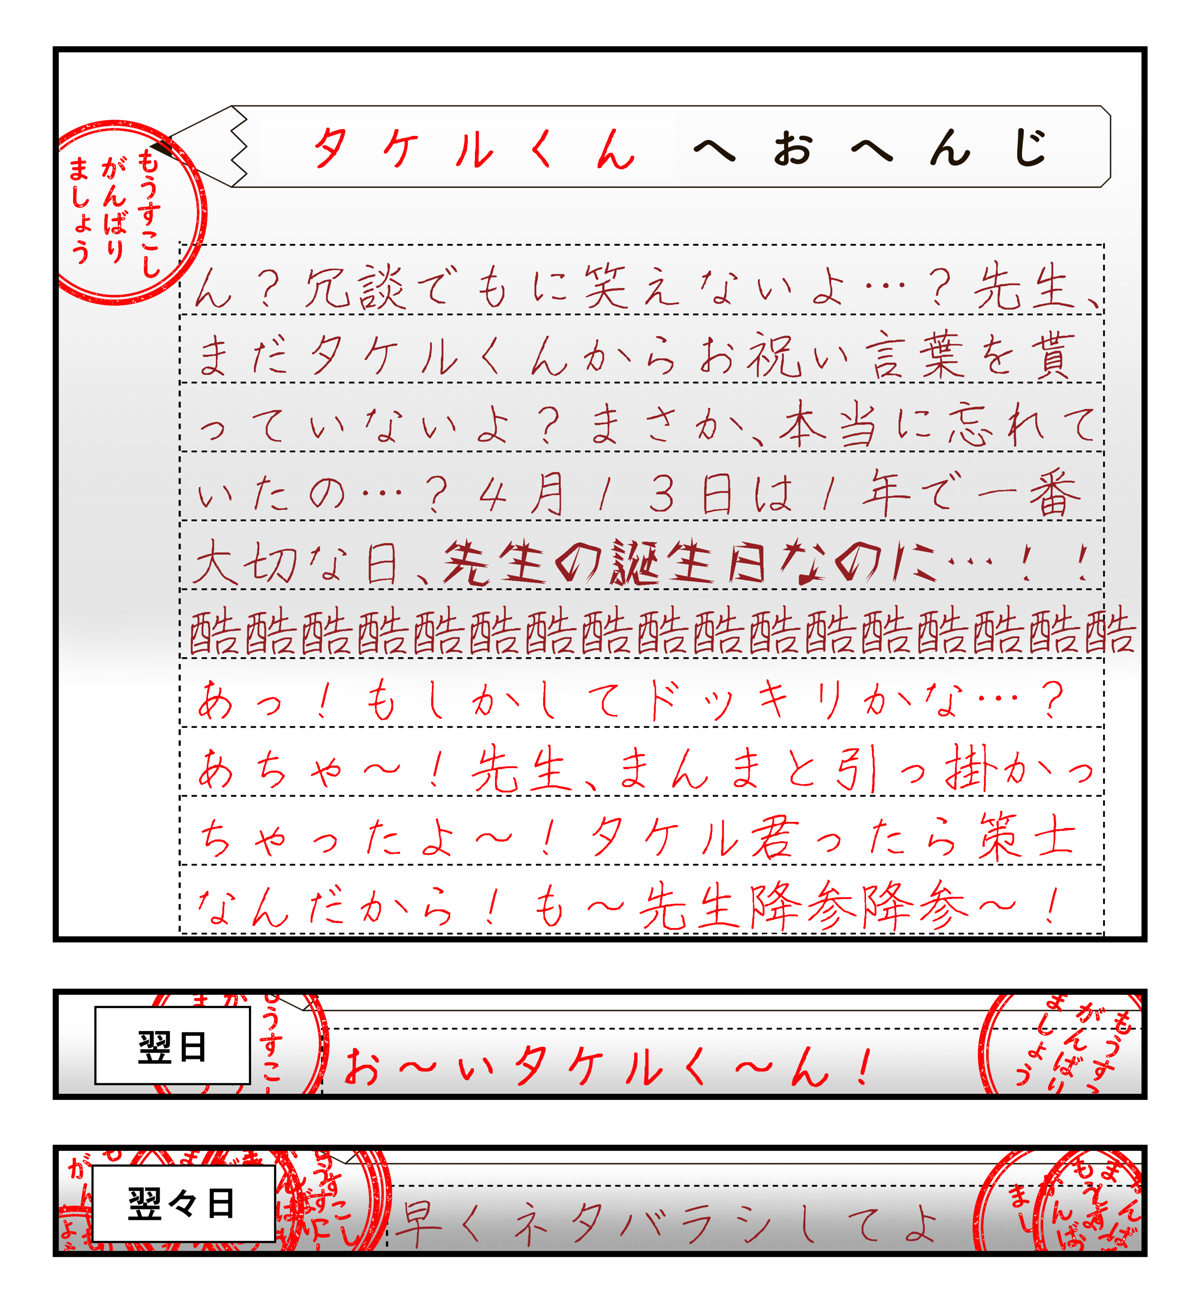 タケルくんへおへんじ
もうすこし
がんばり
ましょう
ん？冗談でもに笑えないよ…？先生、
まだタケルくんからお祝い言葉を貰
っていないよ？まさか、本当に忘れて
いたの…？４月１３日は１年で一番
大切な日、先生の誕生日なのに…！！
酷酷酷酷酷酷酷酷酷酷酷酷酷酷酷酷酷
あっ！もしかしてドッキリかな…？
あちゃ〜！先生、まんまと引っ掛かっ
ちゃったよ〜！タケル君ったら策士
なんだから！も〜先生降参降参〜！
翌日
もうすこし
お〜いタケルく〜ん！
もうすこ
がんばり
ましょう
翌々日
早くネタバラシしてよ